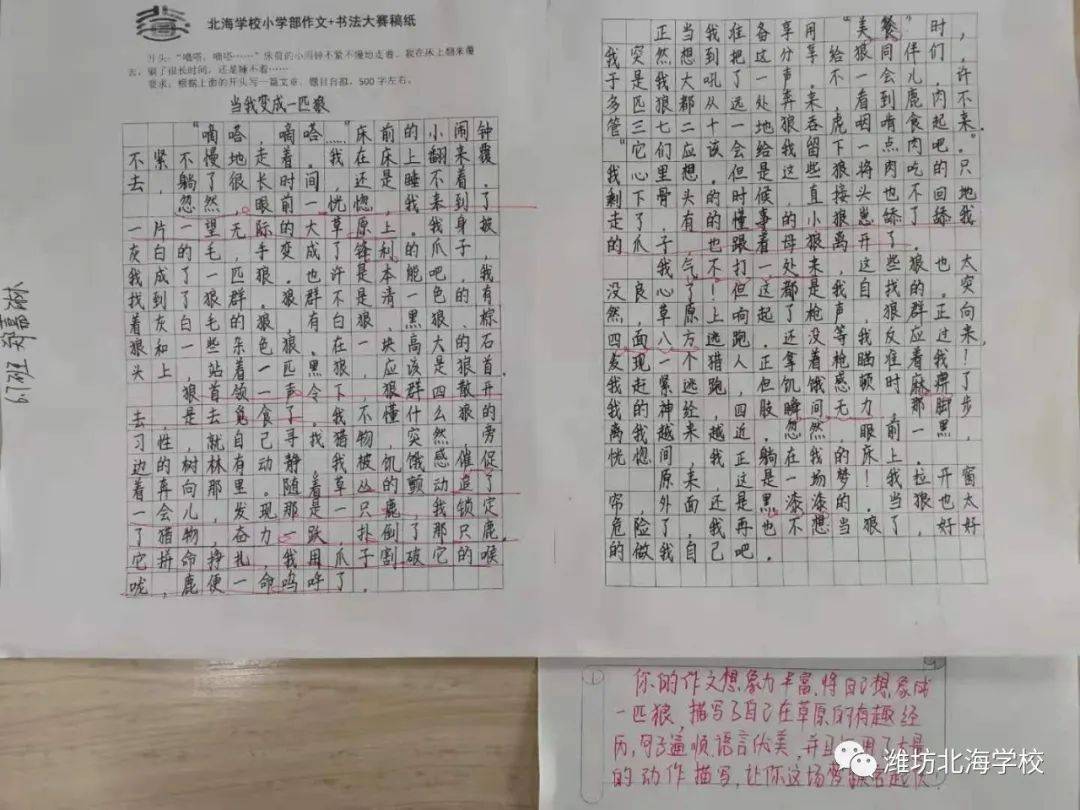 北海学校小学部作文+书法大赛稿纸
开头:“嘀嗒,嘀嗒……”床前的小闹钟不紧不慢地走着。我在床上翻来覆
去,躺了很长时间,还是睡不着……
要求:根据上面的开头写一篇文章,题目自拟,500字左右。
当我变成一匹狼
“嘀嗒,嘀嗒……”床前的小闹钟
不紧不慢地走着。我在床上翻来覆
去,躺了很长时间,还是睡不着。
忽然,眼前一恍惚,我来到了
一片一望无际的大草原上。我身披
灰白的毛,手变成了锋利的爪子,
我成了一匹狼。也许是本能吧,我
找到了狼群。狼群不是清一色的,有
着灰白毛的狼,有白狼、黑狼、棕
狼和一些杂色狼。在一块高大的石
头上,站着一匹黑狼,应该是狼首。
狼首领一声令下,狼群四散开
去,是去觅食了。我不懂什么狼的
习性,就自己寻找猎物,突然,旁
边的树林有动静,我被饥饿感催促
着奔向那里。随着草丛的颤动追了
一会儿,发现那是一只鹿,我锁定
了猎物,奋力一跃,扑倒了那只鹿。
它拼命挣扎,我用爪子割破它的喉
咙,鹿便一命呜呼了。
正当我准备享用“美餐”时,
我突然想到把这分享给狼同伴们,
于是我大吼了一声,不一会儿,许
多匹狼都从远处奔来,看到鹿肉不
管三七二十一地狼吞虎咽啃食起来。
“它们应该会给我留下一点肉吧。”
我心里想。但是这些狼将肉吃的只
剩下骨头的时候,直接头也不回地
走了,有的懂事的小狼崽舔了舔我
的爪子,也跟着母狼离开了。
我气不打一处来,这些狼也太
没良心了!但这都是我自找的。突
然,草原上响起了枪声,狼群正向
四面八方逃跑。还没等我反应过来,
发现一个猎人正拿着枪瞄准着我!
我赶紧逃跑,但饥饿感顿时麻痹了
我的神经,四肢瞬间无力,那脚步
离我越来越近。忽然,眼前一黑,
恍惚间,我正躺在我的床上。
原来,这是一场梦!我拉开窗
帘,外面还是黑漆漆的。当狼也太
危险了,我再也不想当狼了,好好
的做我自己吧。
你的作文想象力丰富,将自己想象成
一匹狼,描写了自己在草原的有趣经
历,句子通顺语言优美,并且用了大量
的动作描写,让你这场梦
潍坊北海学校